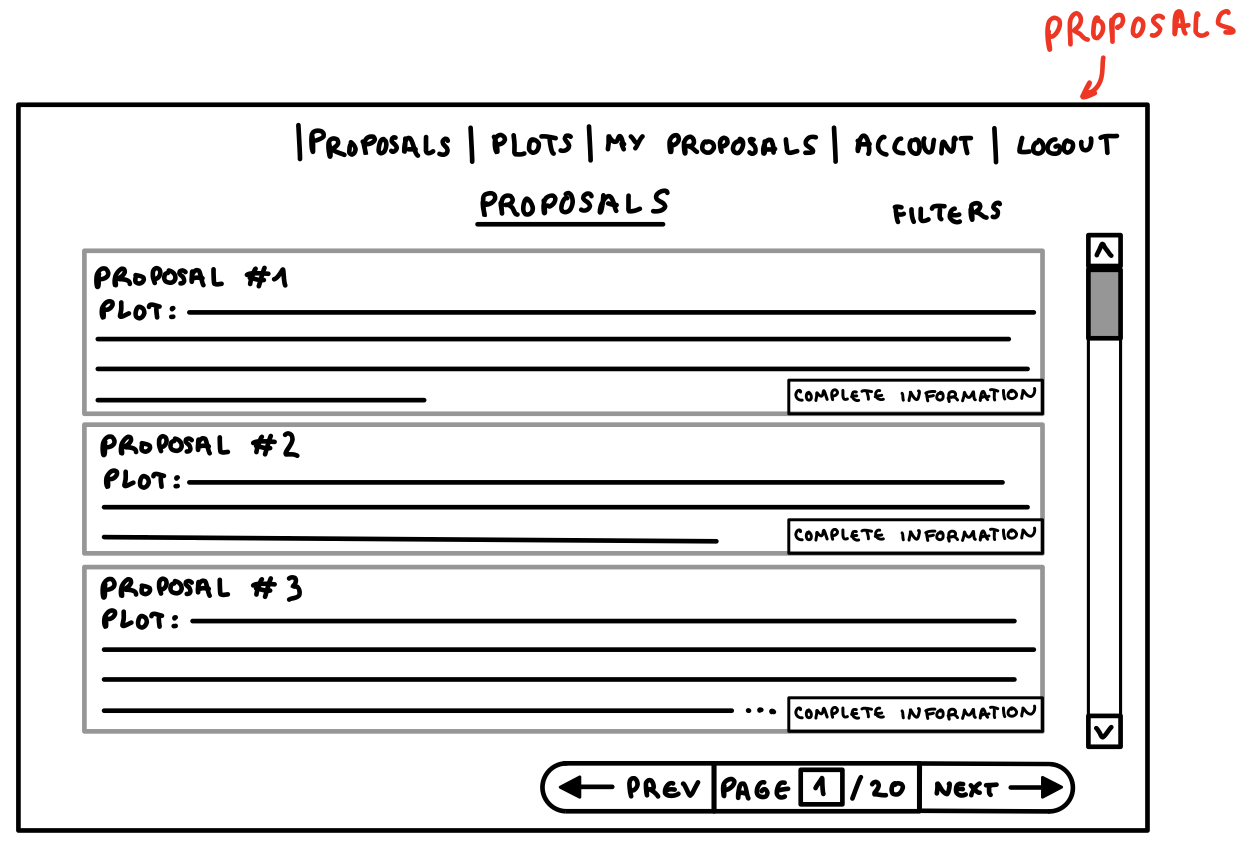 PROPOSALS
|PROPOSALS | PLOTS | MY PROPOSALS | ACCOUNT | LOGOUT
PROPOSALS
FILTERS
PROPOSAL #1
PLOT:
COMPLETE INFORMATION
PROPOSAL #2
PLOT:
COMPLETE INFORMATION
PROPOSAL #3
PLOT:
... COMPLETE INFORMATION
← PREV PAGE 1 /20 NEXT →